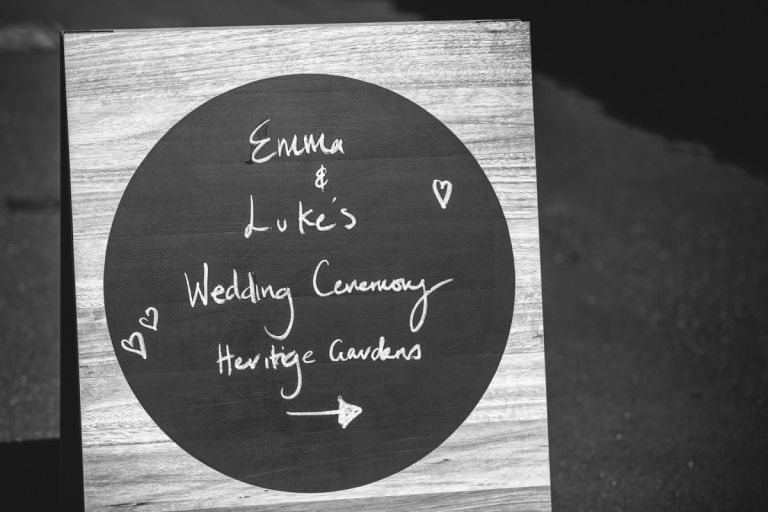 Emma
&
Luke's
Wedding Ceremony
Heritige Gardens